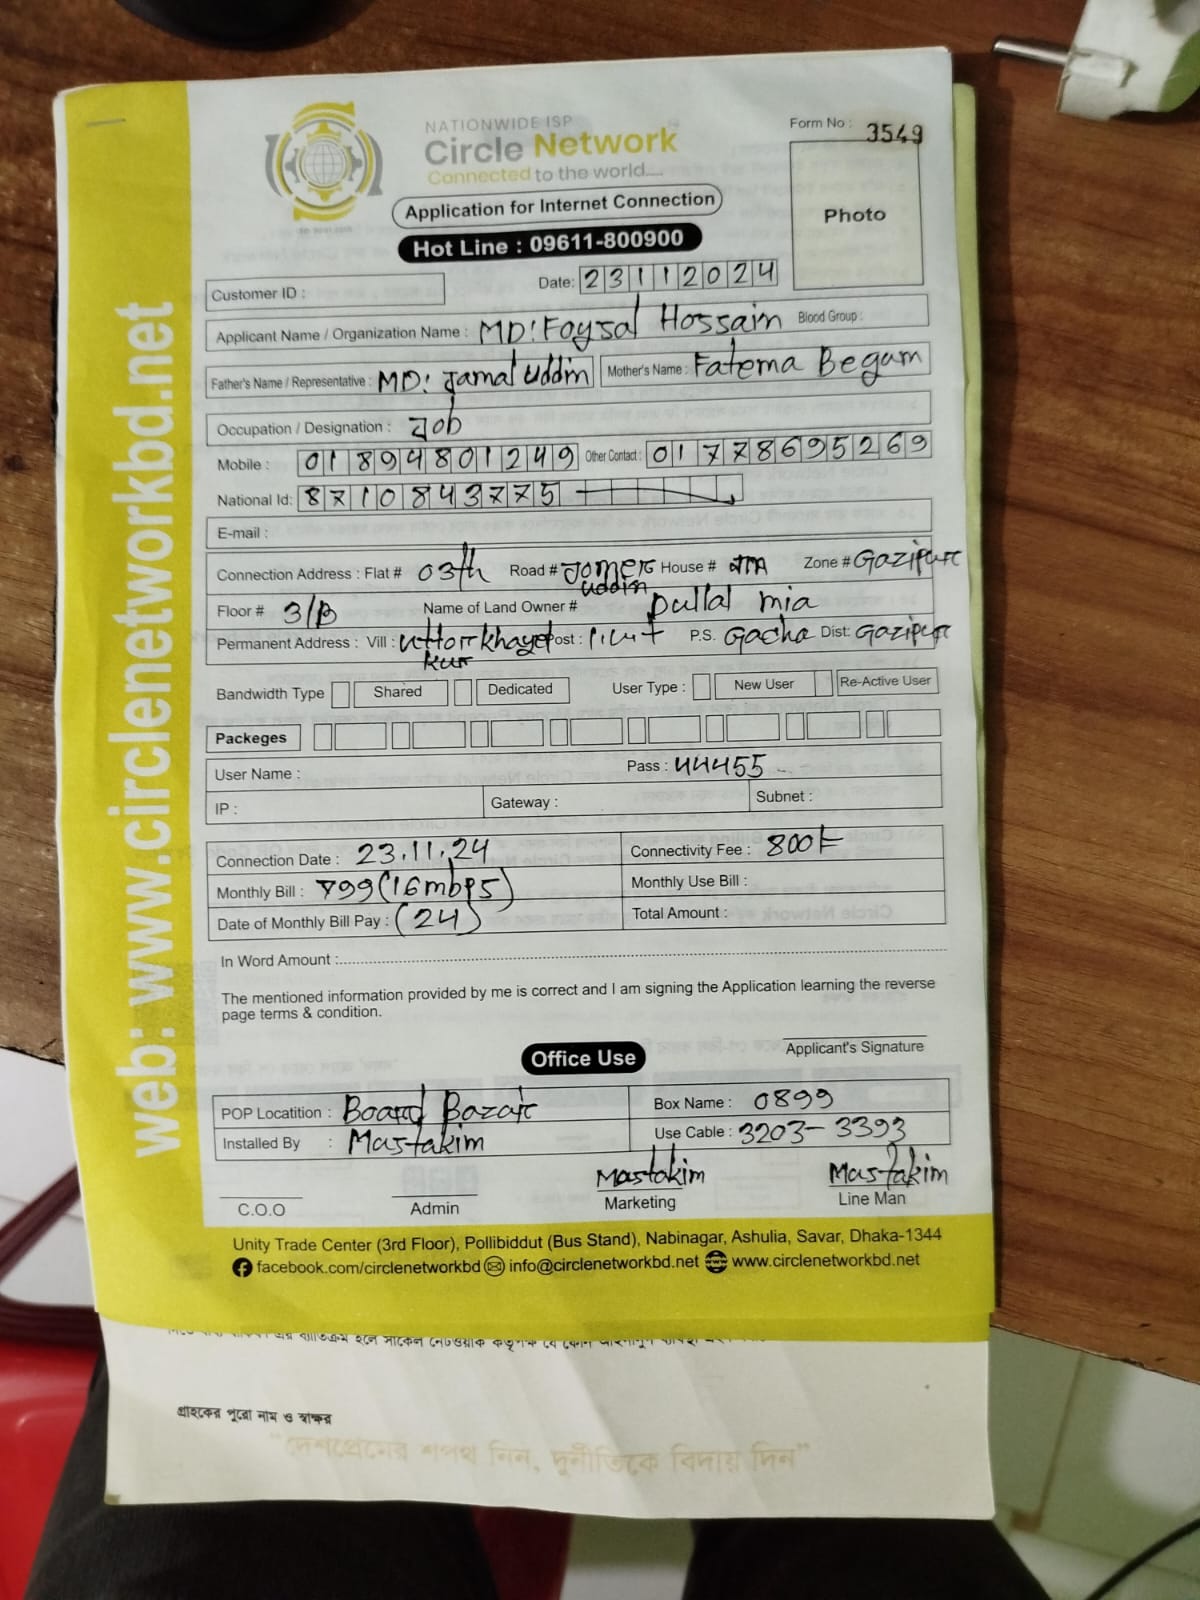 web: www.circlenetworkbd.net
NATIONWIDE ISP
Circle Network
Connected to the world....
Application for Internet Connection
Hot Line : 09611-800900
Form No : 3549
Photo
Customer ID :
Date: 23112024
Applicant Name / Organization Name : MD! Foysal Hossain Blood Group :
Father's Name / Representative : MD: Jamal Uddin Mother's Name : Fatema Begum
Occupation / Designation : Job
Mobile : 01894801249 Other Contact : 01778695269
National Id: 8710843775
E-mail :
Connection Address : Flat # 03th Road # Jomer uddin House # Zone # Gazipur
Floor # 3/B Name of Land Owner # Dullal mia
Permanent Address : Vill : uttorkhayel kur Post : P.S. Gacha Dist: Gazipur
Bandwidth Type Shared Dedicated User Type : New User Re-Active User
Packeges
User Name : Pass : 44455
IP : Gateway : Subnet :
Connection Date : 23.11.24 Connectivity Fee : 800/-
Monthly Bill : 799 (16mbps) Monthly Use Bill :
Date of Monthly Bill Pay : (24) Total Amount :
In Word Amount :
The mentioned information provided by me is correct and I am signing the Application learning the reverse
page terms & condition.
Applicant's Signature
Office Use
POP Locatition : Board Bazar Box Name : 0899
Installed By : Mastakim Use Cable : 3203-3393
Mastakim Mastakim
C.O.O Admin Marketing Line Man
Unity Trade Center (3rd Floor), Pollibiddut (Bus Stand), Nabinagar, Ashulia, Savar, Dhaka-1344
facebook.com/circlenetworkbd info@circlenetworkbd.net www.circlenetworkbd.net
গ্রাহকের পুরো নাম ও স্বাক্ষর
"দেশপ্রেমের শপথ নিন, দুর্নীতিকে বিদায় দিন"